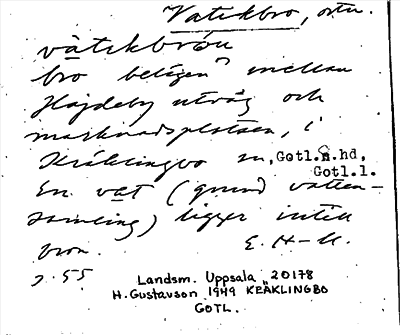 Vatikbro, ortn.
vàtıkbrón
bro belägen mellan
Hajdeby utväg och
marknadsplatsen, i
Kräklingbo sn, Gotl.S.hd,
Gotl.l.
En vat (grund vatten-
samling) ligger intill
bron. E. H-M.
s. 55
Landsm. Uppsala 20178
H. Gustavson 1949 KRÄKLINGBO
GOTL.